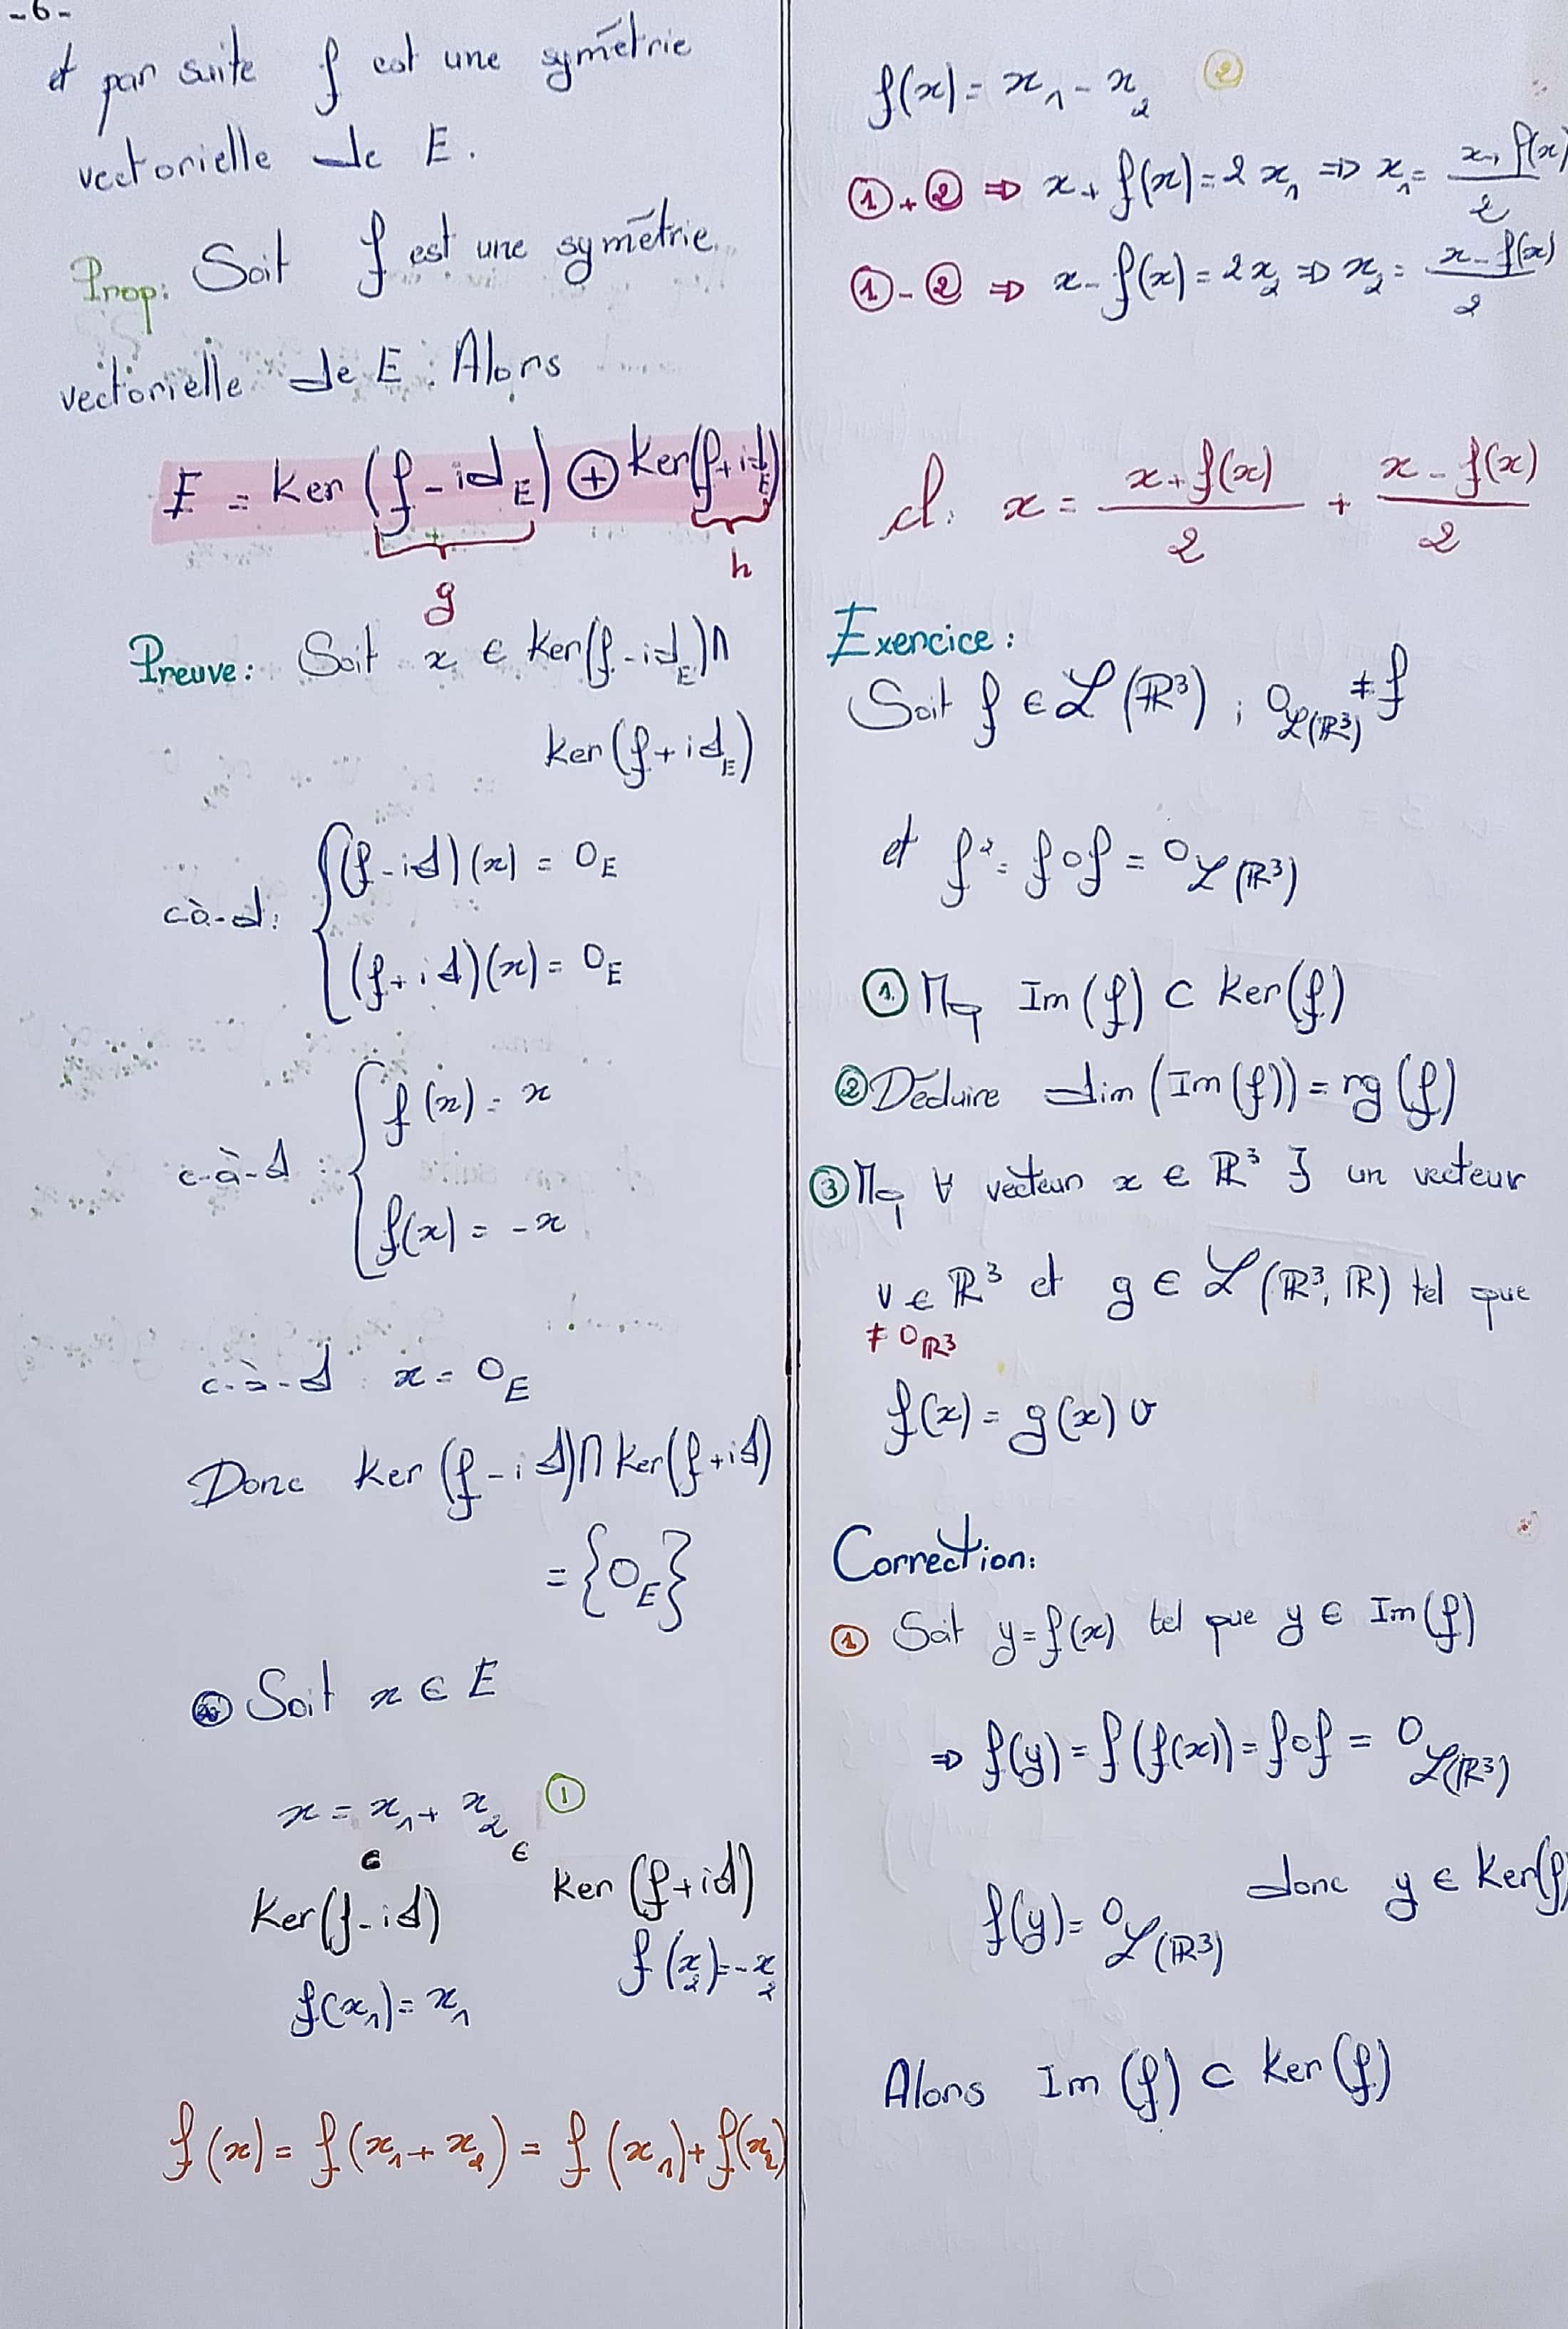 -6-
et par suite f est une symétrie
vectorielle de E.
Prop: Soit f est une symétrie
vectorielle de E. Alors
E = Ker (f - id_E) ⊕ Ker(f + id_E)
g
h
Preuve: Soit x ∈ Ker(f - id_E) ∩
Ker(f + id_E)
cà-d: { (f - id)(x) = 0_E
(f + id)(x) = 0_E
c-à-d : { f(x) = x
f(x) = -x
c-à-d x = 0_E
Donc Ker (f - id) ∩ Ker(f + id)
= {0_E}
Soit x ∈ E
x = x₁ + x₂ ①
∈ ∈
Ker(f - id) Ker (f + id)
f(x₁) = x₁ f(x₂) = -x₂
f(x) = f(x₁ + x₂) = f(x₁) + f(x₂)
f(x) = x₁ - x₂ ②
① + ② ⇒ x + f(x) = 2x₁ ⇒ x₁ = (x + f(x))/2
① - ② ⇒ x - f(x) = 2x₂ ⇒ x₂ = (x - f(x))/2
cl: x = (x + f(x))/2 + (x - f(x))/2
Exercice :
Soit f ∈ ℒ(ℝ³) ; 0_ℒ(ℝ³) ≠ f
et f² = f∘f = 0_ℒ(ℝ³)
① Mq Im(f) ⊂ Ker(f)
② Déduire dim (Im(f)) = rg(f)
③ Mq ∀ vecteur x ∈ ℝ³ ∃ un vecteur
v ∈ ℝ³ et g ∈ ℒ(ℝ³, ℝ) tel que
≠ 0_ℝ³
f(x) = g(x) v
Correction:
① Soit y = f(x) tel que y ∈ Im(f)
⇒ f(y) = f(f(x)) = f∘f = 0_ℒ(ℝ³)
f(y) = 0_ℒ(ℝ³) donc y ∈ Ker(f)
Alors Im(f) ⊂ Ker(f)